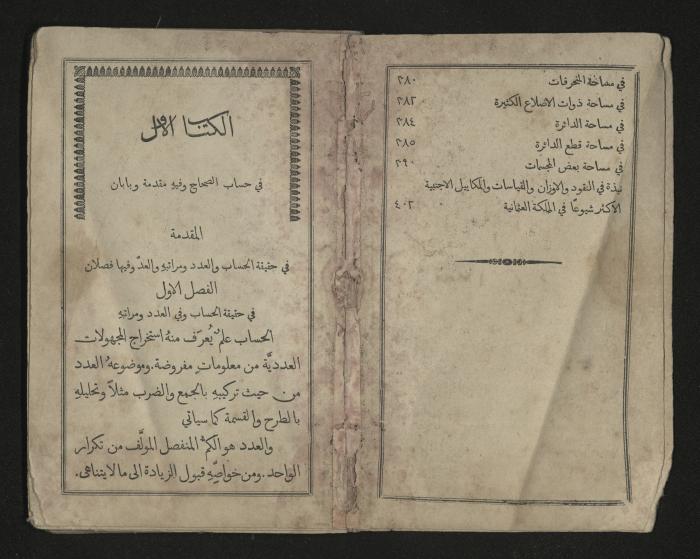 في مساحة المنحرفات ٣٨٠
في مساحة ذوات الاضلاع الكثيرة ٣٨٢
في مساحة الدائرة ٣٨٤
في مساحة قطع الدائرة ٣٨٥
في مساحة بعض المجسمات ٣٩٠
نبذة في النقود والاوزان والقياسات والمكاييل الاجنبية
الاكثر شيوعًا في المملكة العثمانية ٤٠٢
الكتاب الاول
في حساب الصحاح وفيهِ مقدمة وبابان
المقدمة
في حقيقة الحساب والعدد ومراتبهِ والعدّ وفيها فصلان
الفصل الاول
في حقيقة الحساب وفي العدد ومراتبهِ
الحساب علمٌ يُعرَف منهُ استخراج المجهولات
العدديَّة من معلوماتٍ مفروضة. وموضوعهُ العدد
من حيث تركيبهِ بالجمع والضرب مثلاً وتحليلهِ
بالطرح والقسمة كما سياتي
والعدد هو الكمُّ المنفصل المولَّف من تكرار
الواحد. ومن خواصِّهِ قبول الزيادة الى ما لا يتناهى.